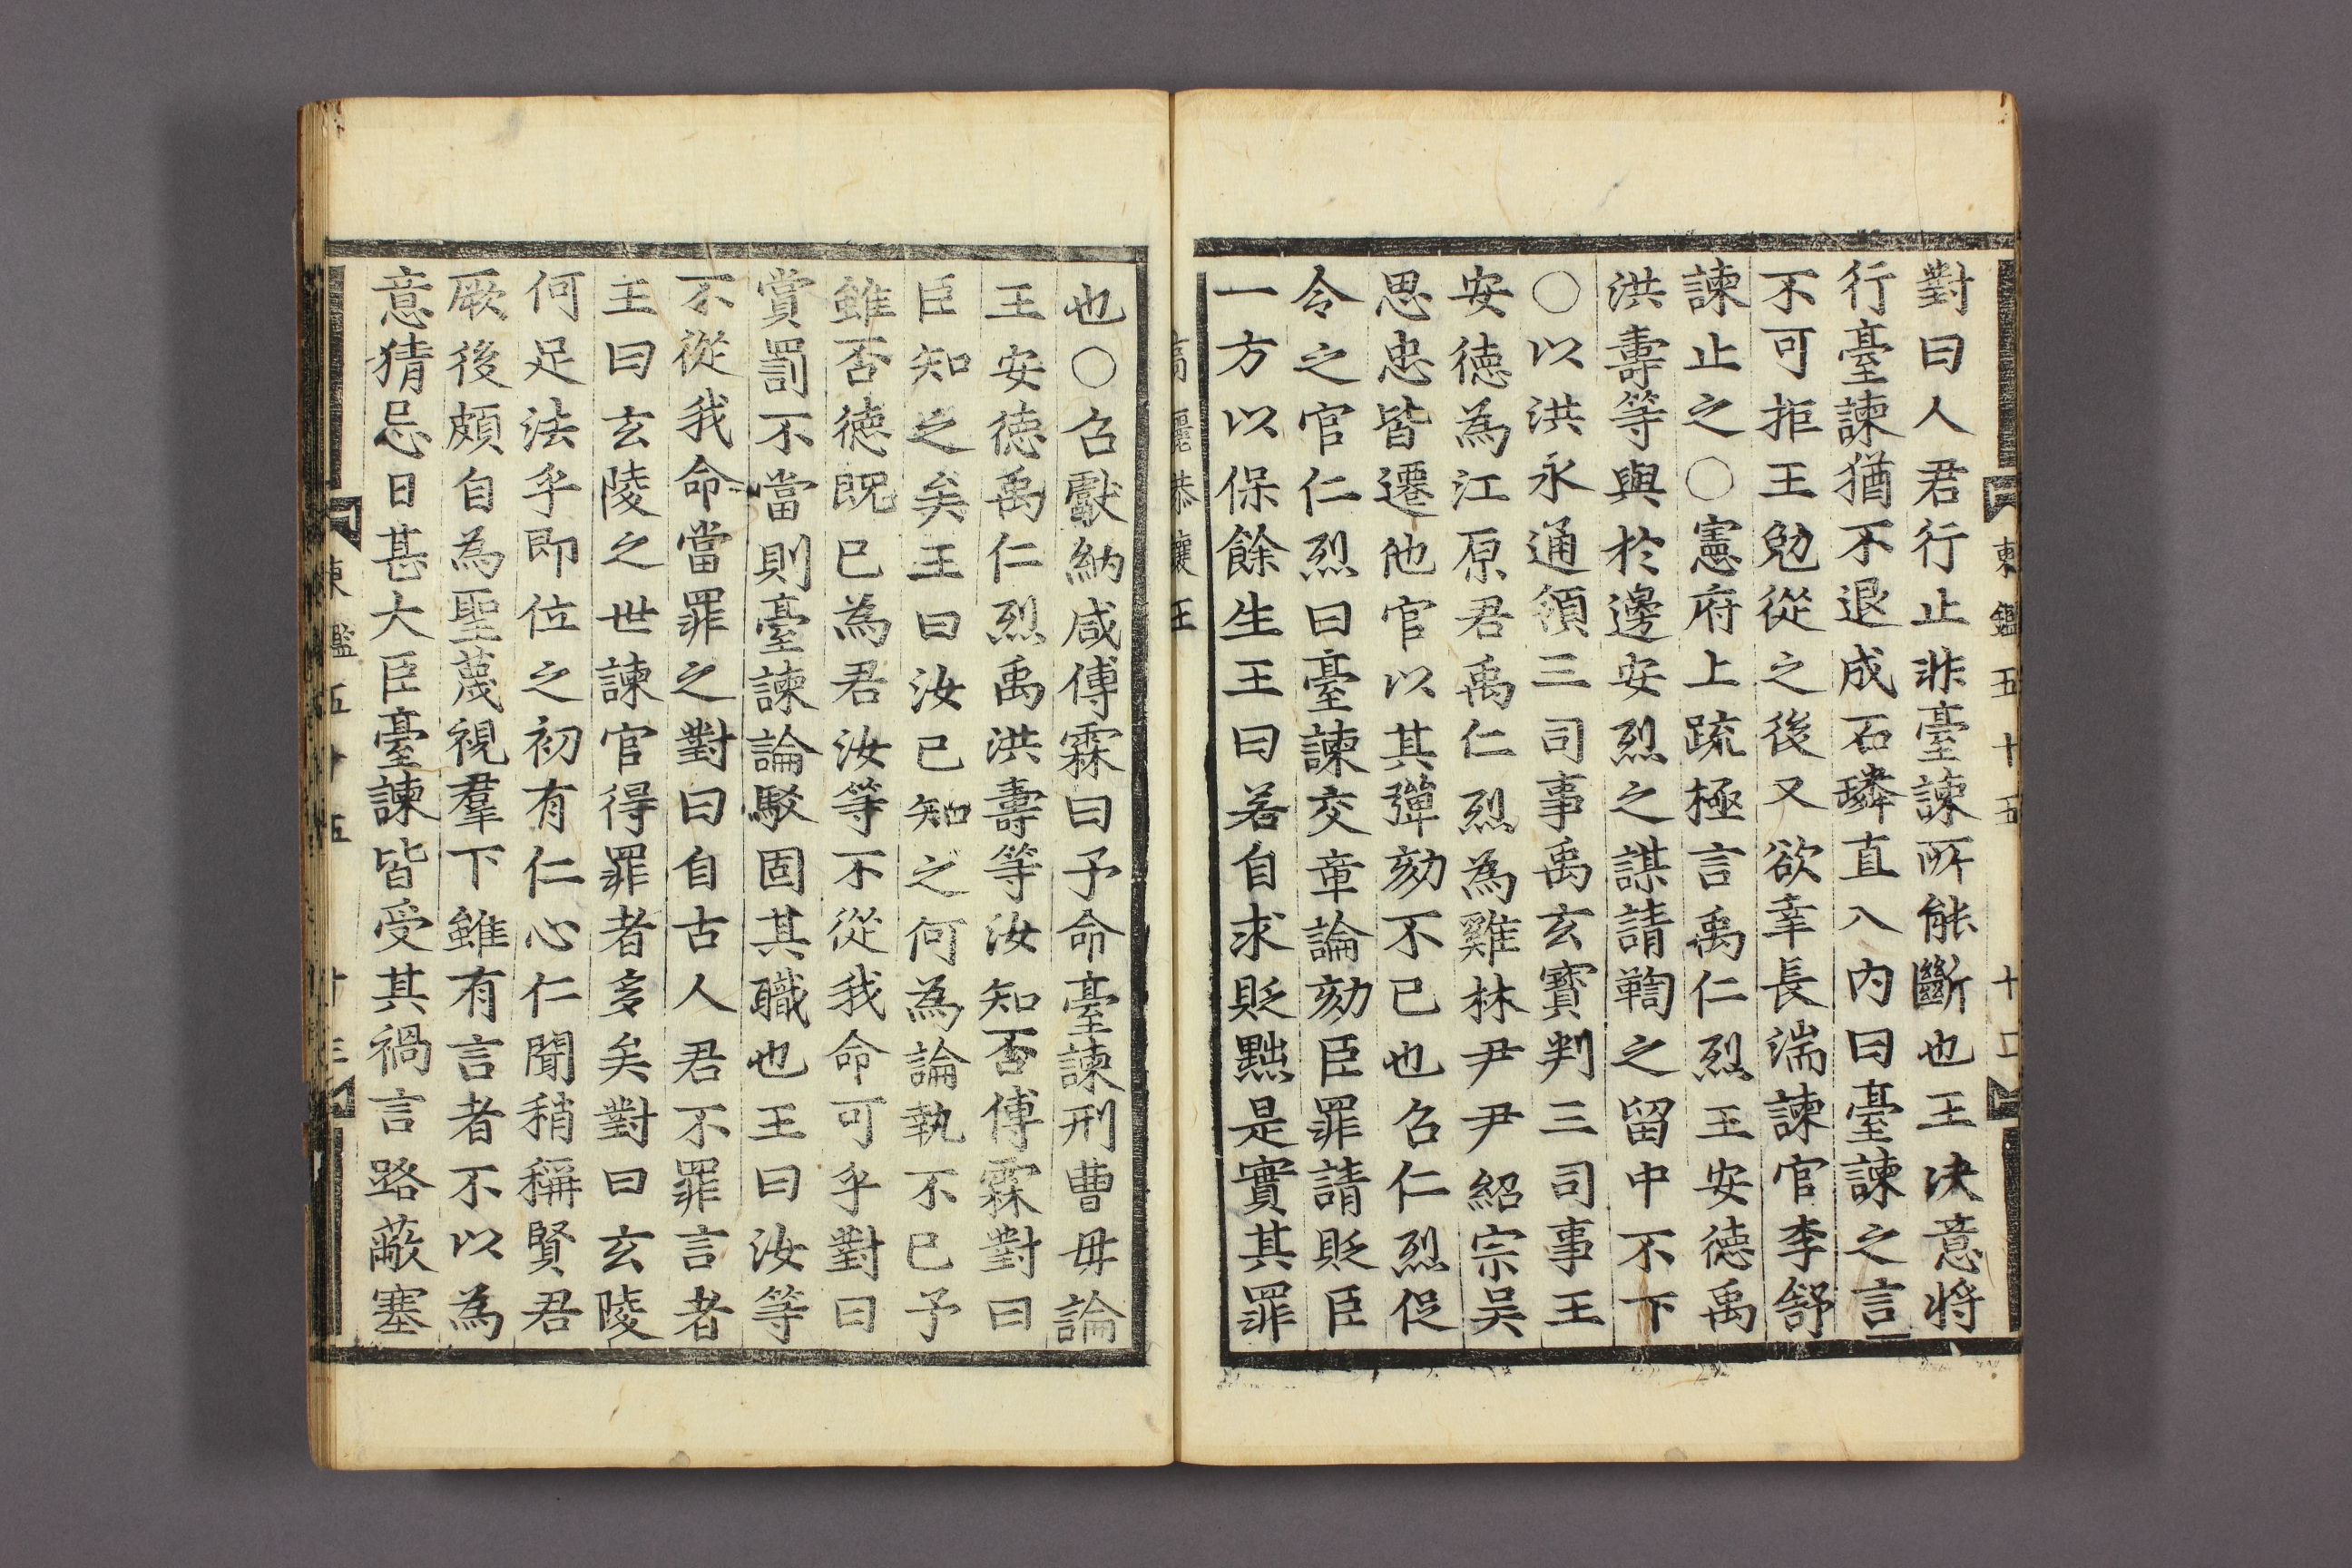 東鑑五十五 十二
對曰人君行止非臺諫所能斷也王決意將
行臺諫猶不退成石璘直入內曰臺諫之言
不可拒王勉從之後又欲幸長湍諫官李舒
諫止之○憲府上疏極言禹仁烈王安德禹
洪壽等與於邊安烈之謀請鞫之留中不下
○以洪永通領三司事禹玄寶判三司事王
安德為江原君禹仁烈為雞林尹尹紹宗吳
思忠皆遷他官以其彈劾不已也召仁烈促
令之官仁烈曰臺諫交章論劾臣罪請貶臣
一方以保餘生王曰若自求貶黜是實其罪
高麗恭讓王
也○召獻納咸傅霖曰予命臺諫刑曹毋論
王安德禹仁烈禹洪壽等汝知否傅霖對曰
臣知之矣王曰汝已知之何為論執不已予
雖否德既已為君汝等不從我命可乎對曰
賞罰不當則臺諫論駁固其職也王曰汝等
不從我命當罪之對曰自古人君不罪言者
王曰玄陵之世諫官得罪者多矣對曰玄陵
何足法乎即位之初有仁心仁聞稍稱賢君
厥後頗自為聖蔑視羣下雖有言者不以為
意猜忌日甚大臣臺諫皆受其禍言路蔽塞
東鑑五十五 十三